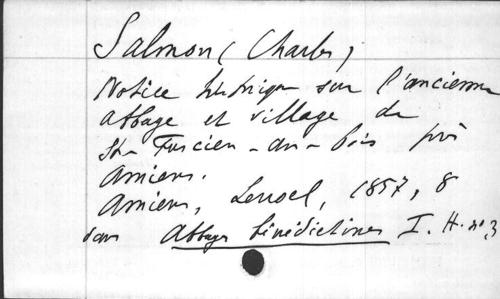 Salmon (Charles)
Notice historique sur l'ancienne
abbaye et village de
St- Fuscien-au-bois près
Amiens.
Amiens, Lenoel, 1857, 8
dans Abbayes bénédictines I. H. no 3